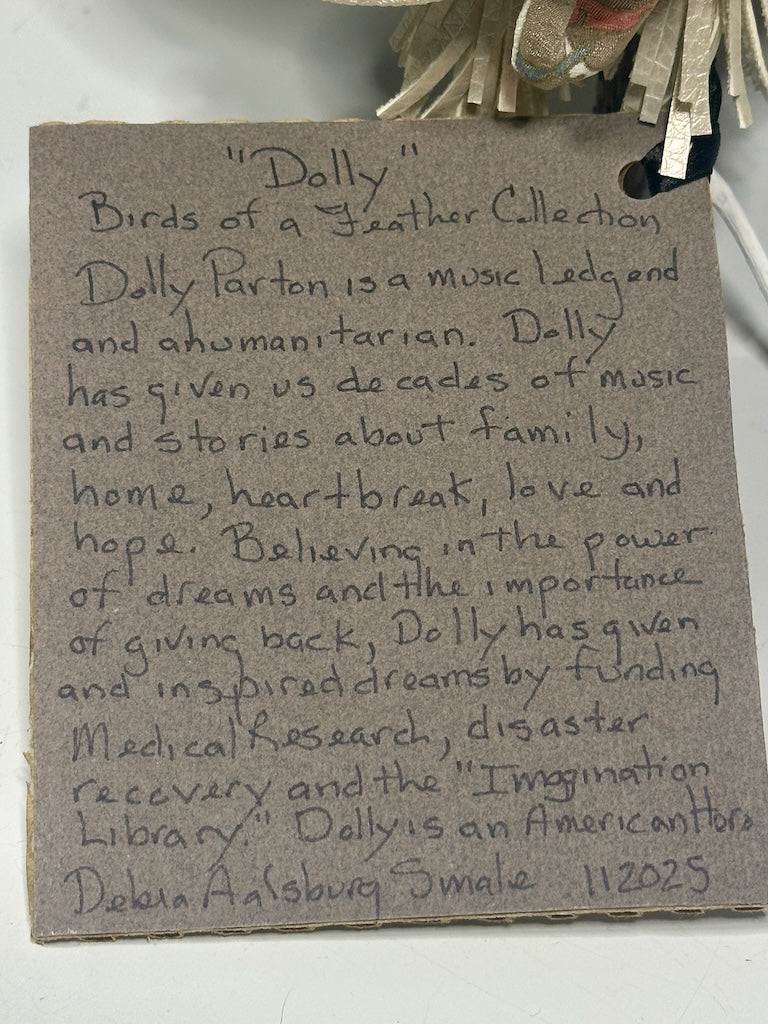 "Dolly"
Birds of a Feather Collection
Dolly Parton is a music ledgend
and ahumanitarian. Dolly
has given us decades of music
and stories about family,
home, heartbreak, love and
hope. Believing in the power
of dreams and the importance
of giving back, Dolly has given
and inspired dreams by funding
Medical Research, disaster
recovery and the "Imagination
Library." Dolly is an American Hero
Debra Aalsburg Smale 112025